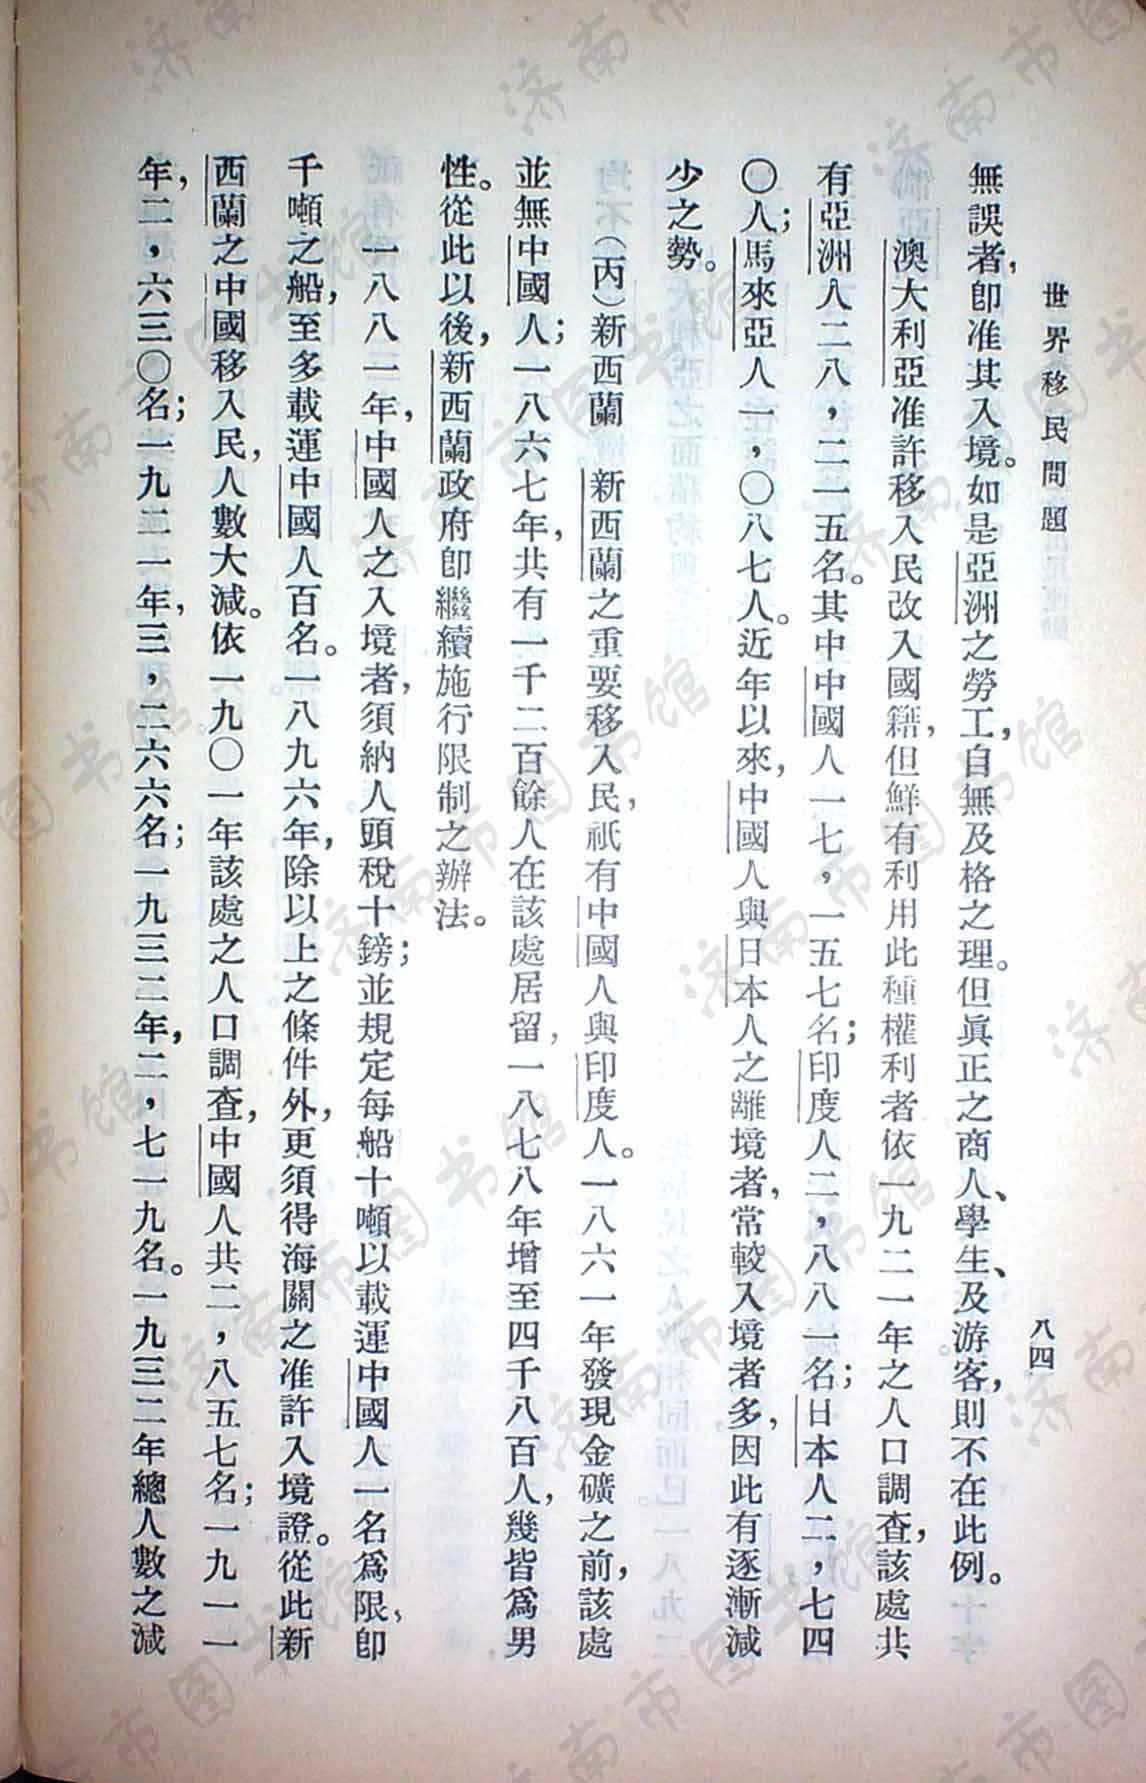 世界移民問題
八四
無誤者，卽准其入境。如是亞洲之勞工，自無及格之理。但眞正之商人、學生、及游客，則不在此例。
澳大利亞准許移入民改入國籍，但鮮有利用此種權利者依一九二一年之人口調查，該處共
有亞洲人二八，二一五名。其中中國人一七，一五七名；印度人二，八八一名；日本人二，七四
〇人；馬來亞人一，〇八七人。近年以來，中國人與日本人之離境者，常較入境者多，因此有逐漸減
少之勢。
（丙）新西蘭　新西蘭之重要移入民，祇有中國人與印度人。一八六一年發現金礦之前，該處
並無中國人；一八六七年，共有一千二百餘人在該處居留，一八七八年增至四千八百人，幾皆爲男
性。從此以後，新西蘭政府卽繼續施行限制之辦法。
一八八一年，中國人之入境者，須納人頭稅十鎊；並規定每船十噸以載運中國人一名爲限，卽
千噸之船，至多載運中國人百名。一八九六年，除以上之條件外，更須得海關之准許入境證。從此新
西蘭之中國移入民，人數大減。依一九〇一年該處之人口調查，中國人共二，八五七名；一九一一
年，二，六三〇名；一九二一年，三，二六六名；一九三二年，二，七一九名。一九三二年總人數之減
济南市图书馆